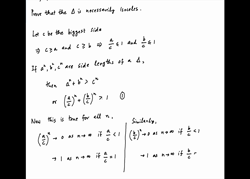 Prove that the Δ is necessarily isosceles.
Let c be the biggest side
⇒ c ≥ a and c ≥ b ⇒ a/c ≤ 1 and b/c ≤ 1
If aⁿ, bⁿ, cⁿ are side lengths of a Δ,
then aⁿ + bⁿ > cⁿ
or (a/c)ⁿ + (b/c)ⁿ > 1 ①
Now this is true for all n.
(a/c)ⁿ → 0 as n→∞ if a/c < 1
→ 1 as n→∞ if a/c = 1
Similarly,
(b/c)ⁿ → 0 as n→∞ if b/c < 1
→ 1 as n→∞ if b/c =